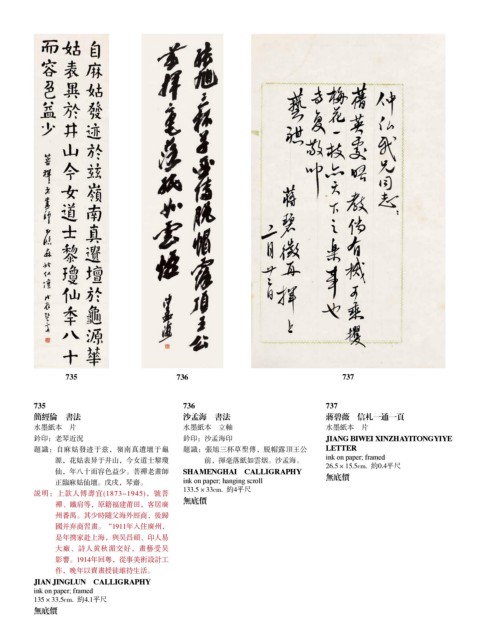 自麻姑發迹於茲嶺南真遺壇於龜源華
姑表異於井山今女道士黎瓊仙年八十
而容色益少
張旭三杯草聖傳脫帽露頂王公
前揮毫落紙如雲煙
沙孟海
735
736
737
735
簡經倫　書法
水墨紙本　片
鈐印：老琴近況
題識：自麻姑發迹于茲，嶺南真遺壇于龜
源，花姑表异于井山，今女道士黎瓊
仙，年八十而容色益少。菩禪老畫師
正臨麻姑仙壇。戊戌，琴齋。
説明：上款人傅壽宜(1873-1945)，號菩
禪、鐵肩等，原籍福建莆田，客居廣
州番禺。其少時隨父海外經商，後歸
國并弃商習畫。“1911年入住廣州，
是年携家赴上海，與吴昌碩、印人易
大廠、詩人黄秋園交好，畫藝受吴
影響。1914年回粤，從事美術設計工
作，晚年以賣畫授徒維持生活。
JIAN JINGLUN CALLIGRAPHY
ink on paper; framed
135 × 33.5cm. 約4.1平尺
無底價
736
沙孟海　書法
水墨紙本　立軸
鈐印：沙孟海印
題識：張旭三杯草聖傳，脫帽露頂王公
前，揮毫落紙如雲烟。沙孟海。
SHAMENGHAI CALLIGRAPHY
ink on paper; hanging scroll
133.5 × 33cm. 約4平尺
無底價
737
蔣碧薇　信札一通一頁
水墨紙本　片
JIANG BIWEI XINZHAYITONGYIYE
LETTER
ink on paper; framed
26.5 × 15.5cm. 約0.4平尺
無底價